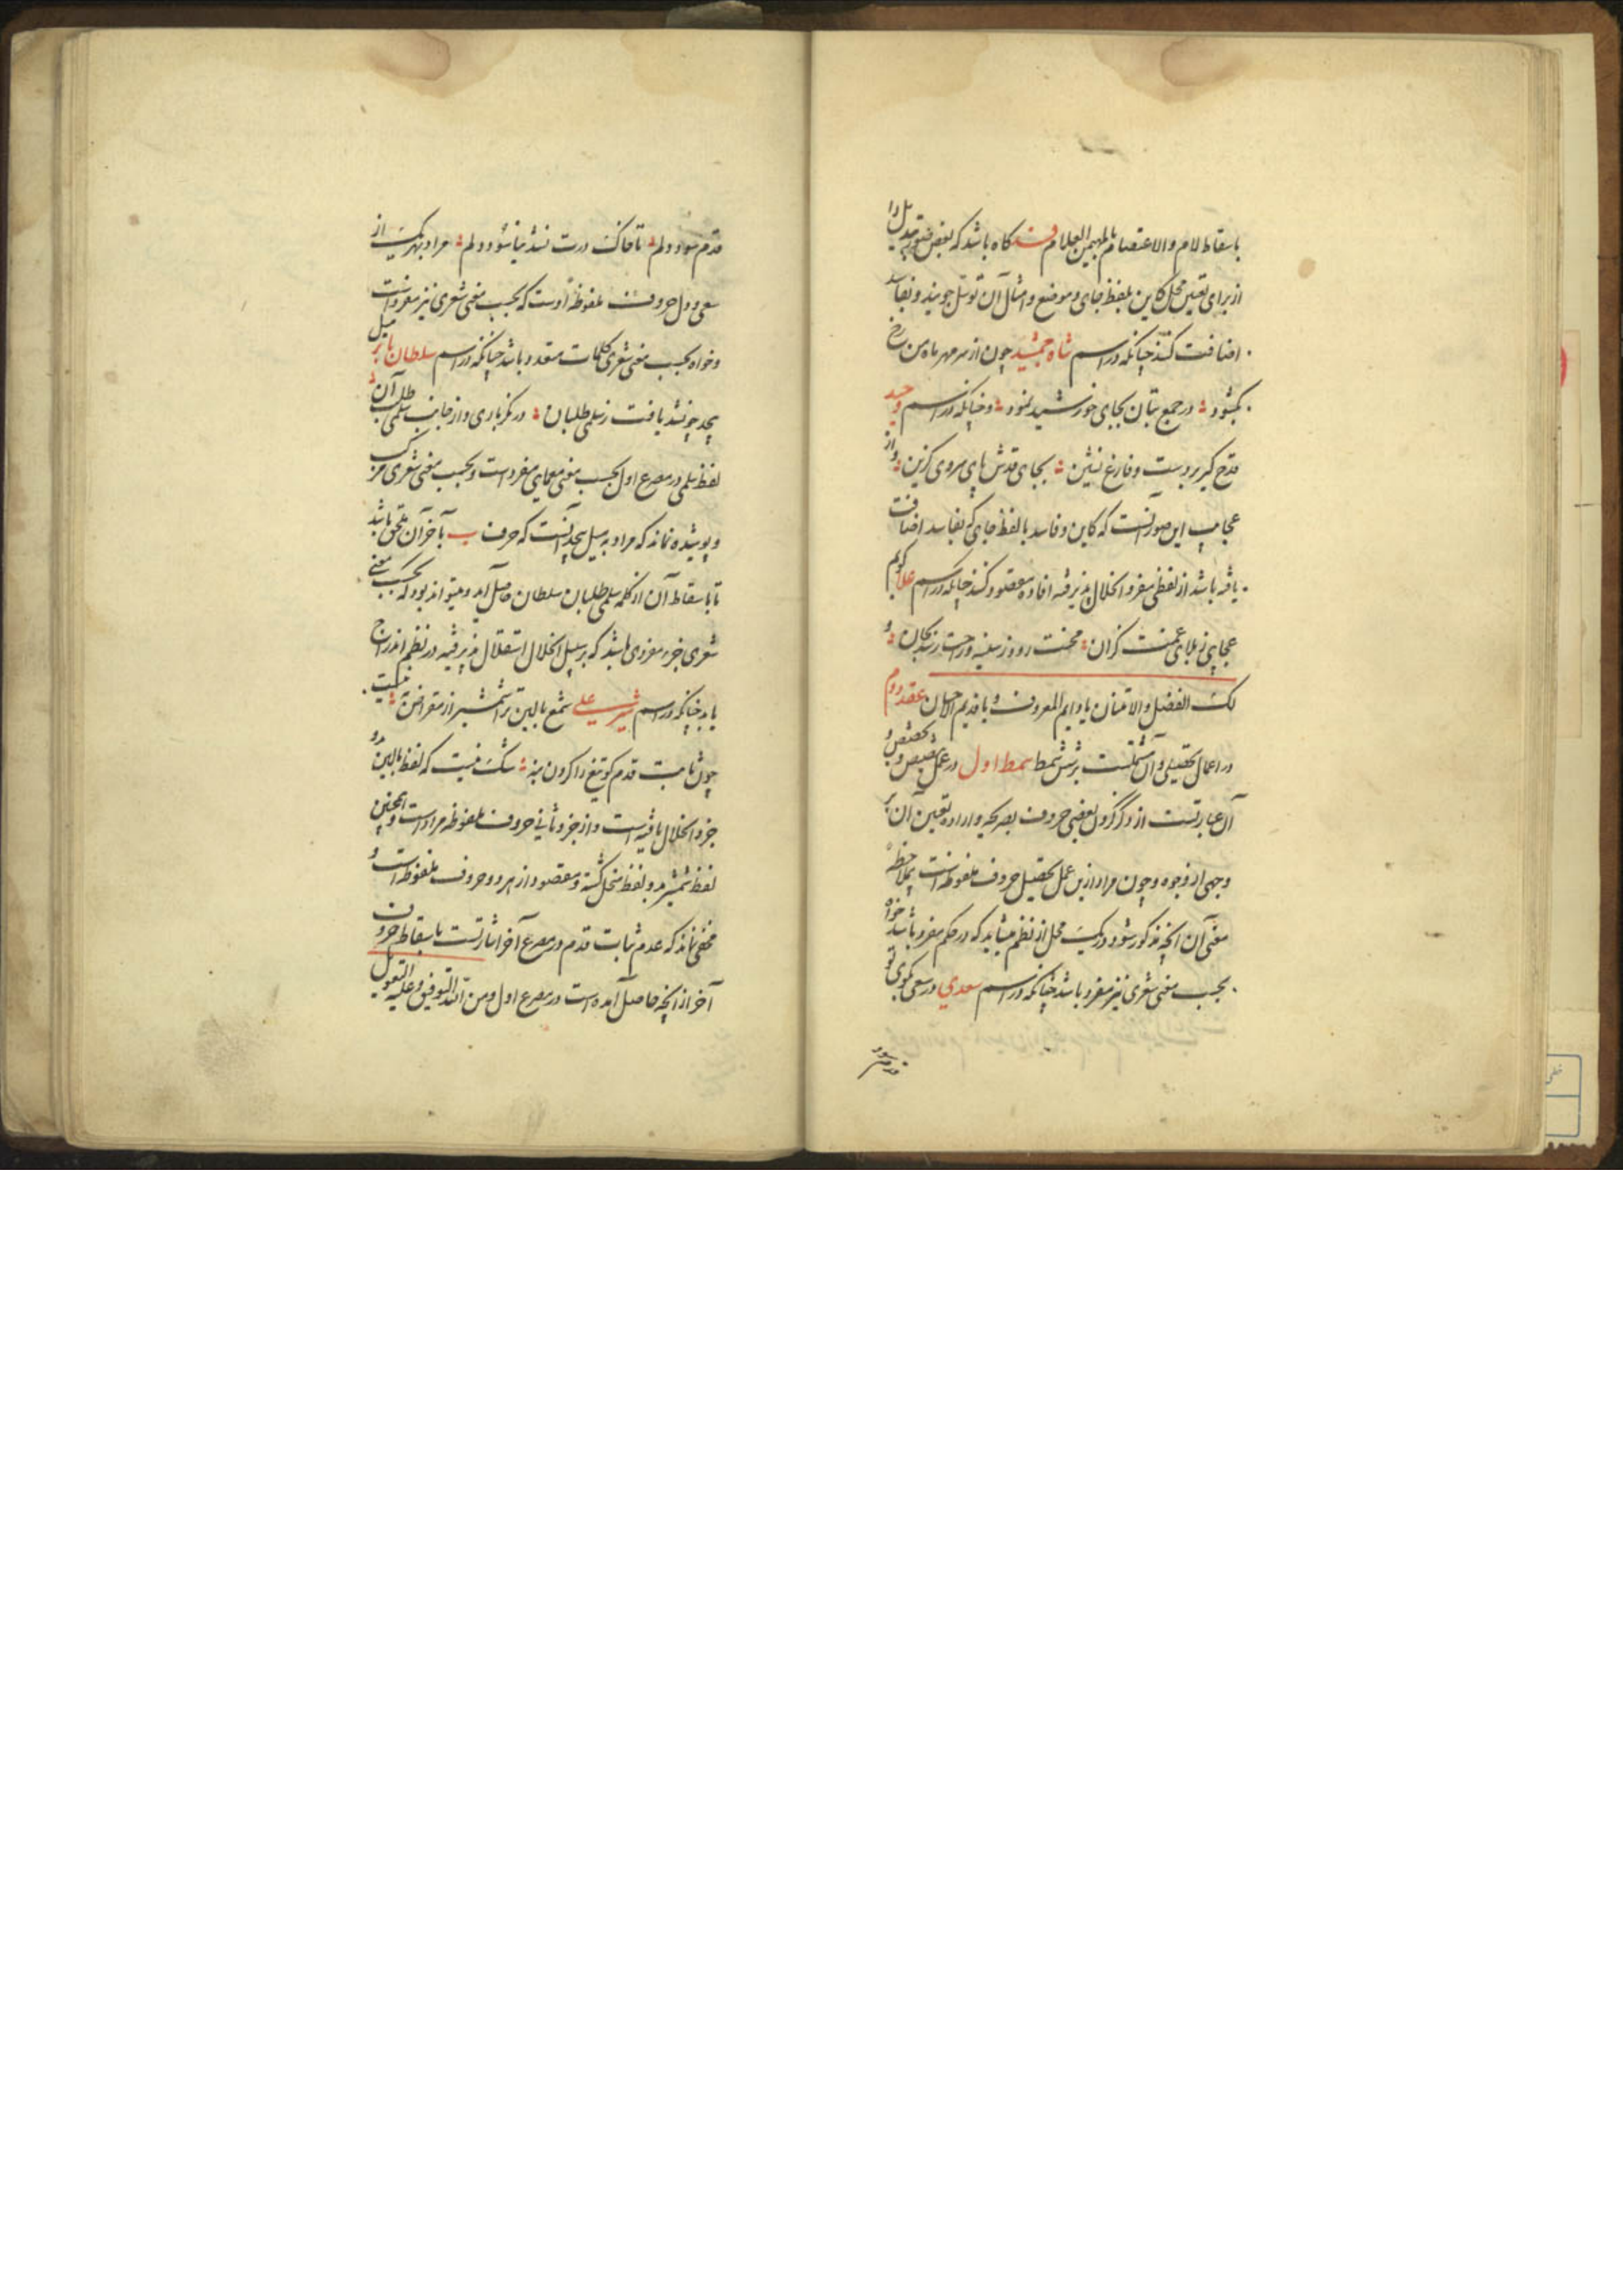 باسقاط لام و الاعتصام بالمهیمن العلام کاه باشد که بعضی صور تبدیل را
از برای تعیین محل کاین بلفظ جای و موضع و امثال آن توسل جویند و بفاسد
اضافت کنند چنانکه در اسم شاه جمشید چون از سر مهر ماه من رخ
بکشود در جمع بتان بجای خورشید نمود و چنانکه در اسم وحید
قدح کیر بر دست و فارغ نشین بجای قدش پای سروی کزین و از
عجایب این صور آنست که کاین و فاسد با لفظ جای که بفاسد اضافت
یافته باشد از لفظی مفرد انحلال پذیرفته افاده مقصود کنند چنانکه در اسم علا کویم
عجایبی ز بلای غمت کران محنت رود ز سینه و راحت رسد بجان و
لک الفضل و الامتنان یا دایم المعروف و یا قدیم الاحسان عقد دوم
در اعمال تحصیلی و آن مشتملست برشش سمط سمط اول در عمل تنصیص و تخصیص و
آن عبارتست از ذکر کردن بعضی حروف بصریح و اراده تعیین آن بر
وجهی از وجوه و چون مراد ازین عمل تحصیل حروف ملفوظه است بملاحظه
معنی آن انچه مذکور شود در یک محل از نظم میشاید که در حکم مفرد باشد خواه
بحسب معنی شعری نیز مفرد باشد چنانکه در اسم سعدی در سعی کوی تو
قدم سود دلم تا خاک درت نشد نیاسود دلم مراد بهر یک از
سعی و دل حروف ملفوظه اوست که بحسب معنی شعری نیز مفرد است
و خواه بحسب معنی شعری کلمات متعدد باشد چنانکه در اسم سلطان بابر
بیحد چو نشد یافت ز سلمی طلبان در کریه و زاری و از جانب سلمی طلب آن
لفظ سلمی در مصرع اول بحسب معنی معمایی مفردست و بحسب معنی شعری مرکب
و پوشیده نماند که مراد به میل بیحد آنست که حرف ب بآخر آن ملحق باشد
تا باسقاط آن از کلمه سلمی طلبان سلطان حاصل آید و میتواند بود که بحسب معنی
شعری جزء مفردی باشد که بر سبیل انحلال استقلال پذیرفته در نظم اندراج
یابد چنانکه در اسم شیر علی شمع بالین تراشمشیر از مقراض نیست
چون ثابت قدم کو تیغ را کردن بنه شک نیست که لفظ بالین بدو
جزو انحلال یافته است و از جزو ثانی حروف ملفوظه مراد است و همچنین
لفظ شمشیر بدو لفظ منحل کشته و مقصود از هر دو حروف ملفوظه است و
مخفی نماند که عدم ثبات قدم در مصرع آخر اشارتست باسقاط حروف
آخر از انچه حاصل آمده است در مصرع اول و من الله التوفیق و علیه التعویل
قدم سود